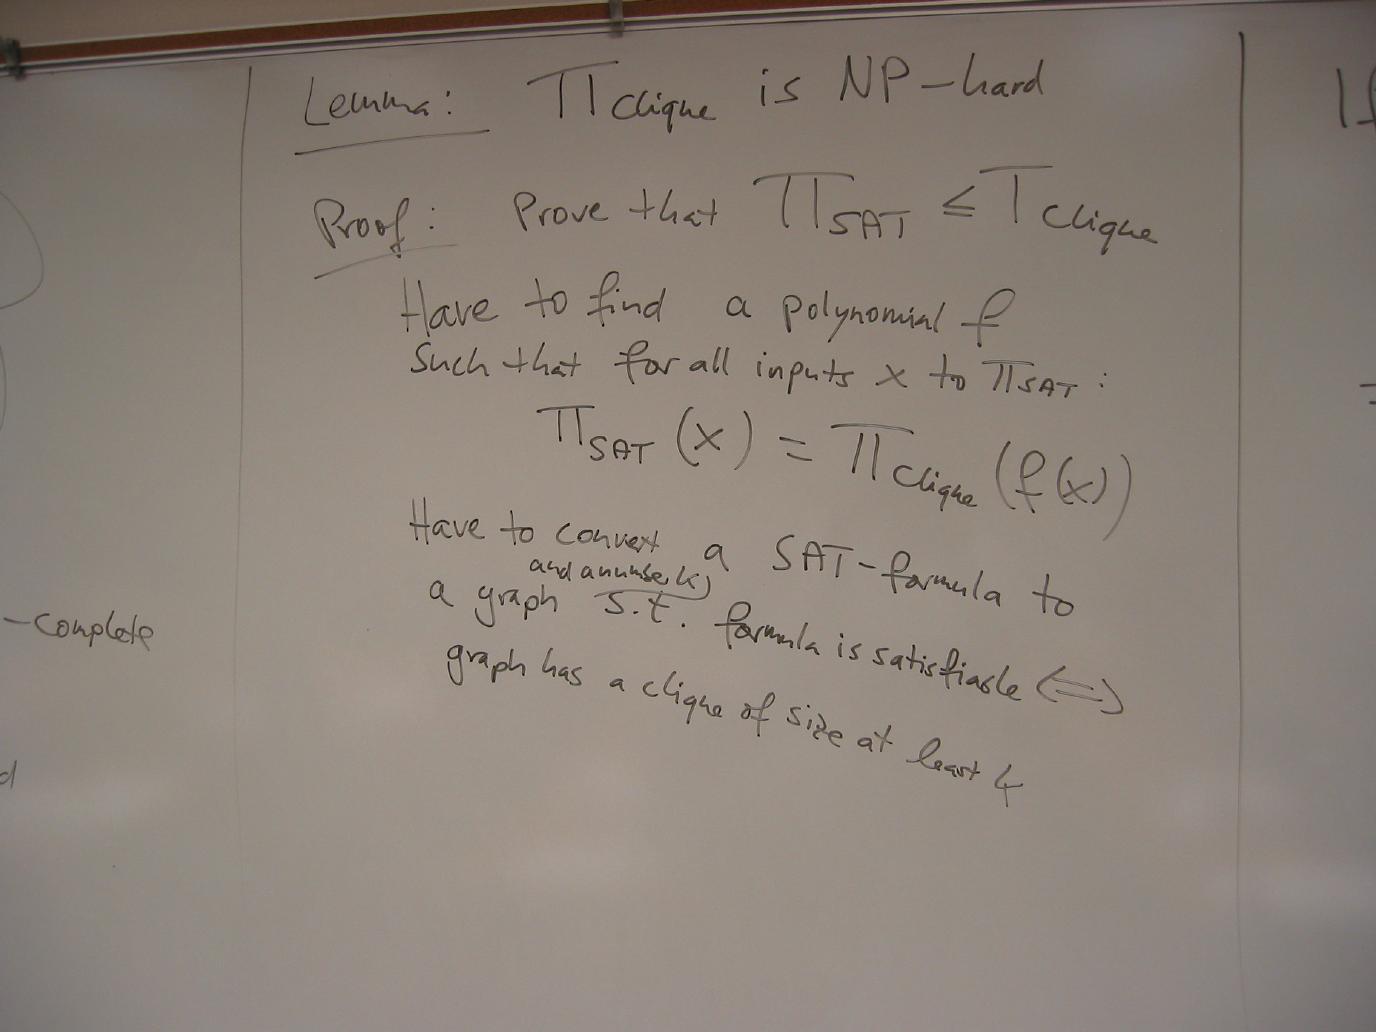 Lemma: Π Clique is NP-hard
Proof: Prove that Π SAT ≤ Π Clique
Have to find a polynomial f
Such that for all inputs x to Π SAT :
Π SAT (x) = Π Clique (f(x))
Have to convert a SAT-formula to
and a number k)
a graph s.t. formula is satisfiable ⇔
graph has a clique of size at least k
-complete
d
If
=